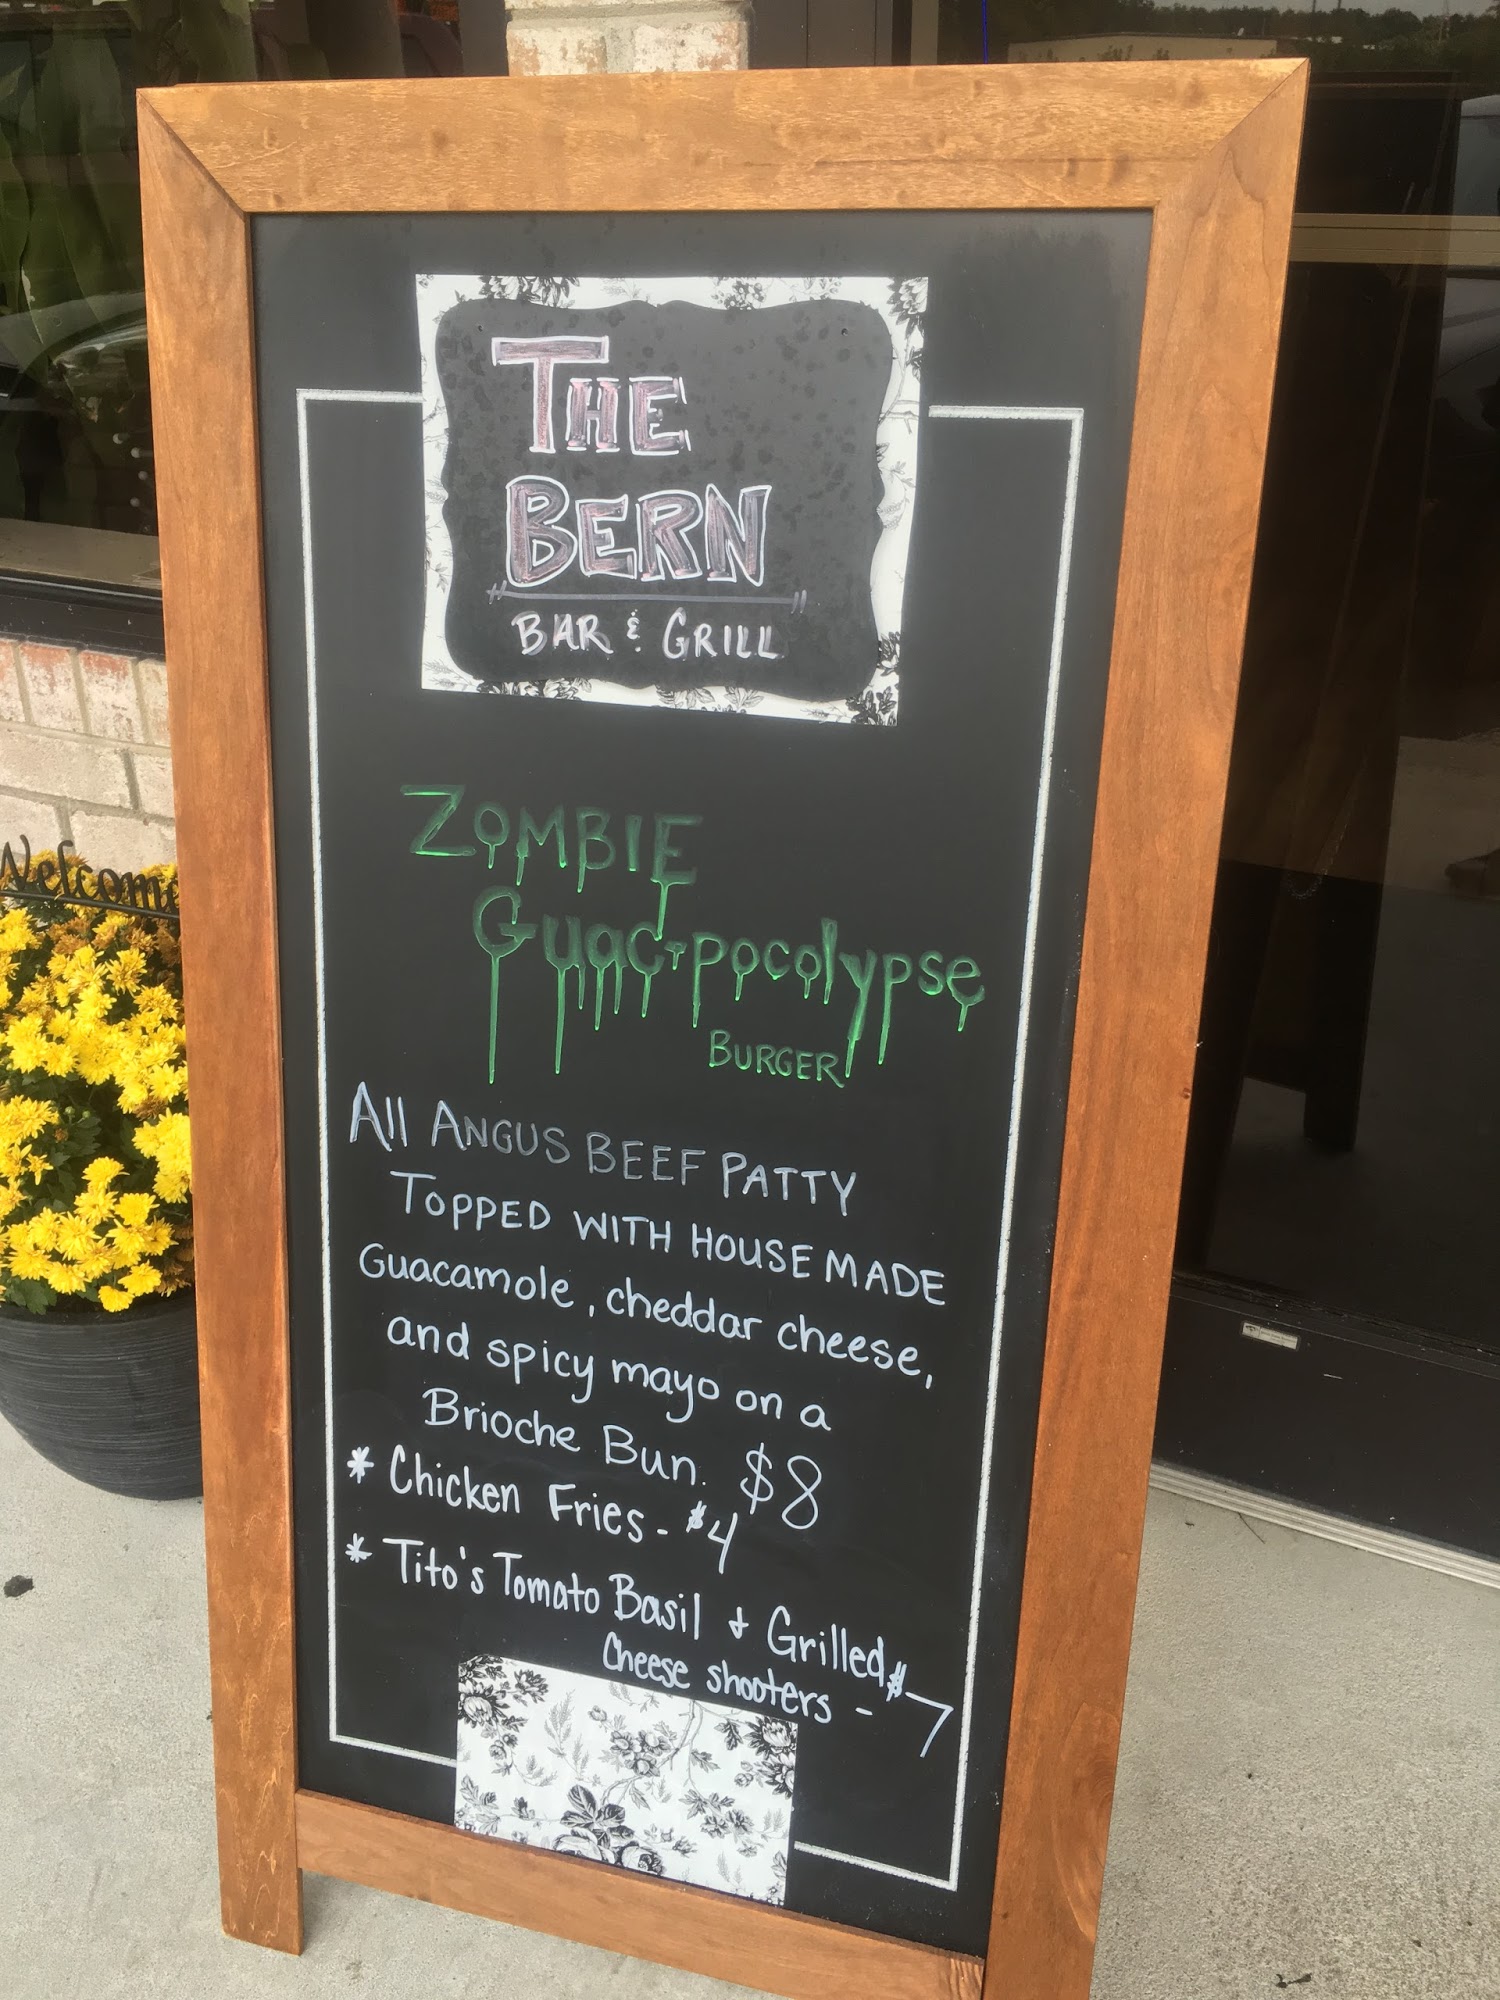 THE
BERN
BAR & GRILL
Welcome
ZOMBIE
Guac-pocolypse
BURGER
All ANGUS BEEF PATTY
TOPPED WITH HOUSE MADE
Guacamole, cheddar cheese,
and spicy mayo on a
Brioche Bun. $8
* Chicken Fries - $4
* Tito's Tomato Basil + Grilled
Cheese shooters - $7